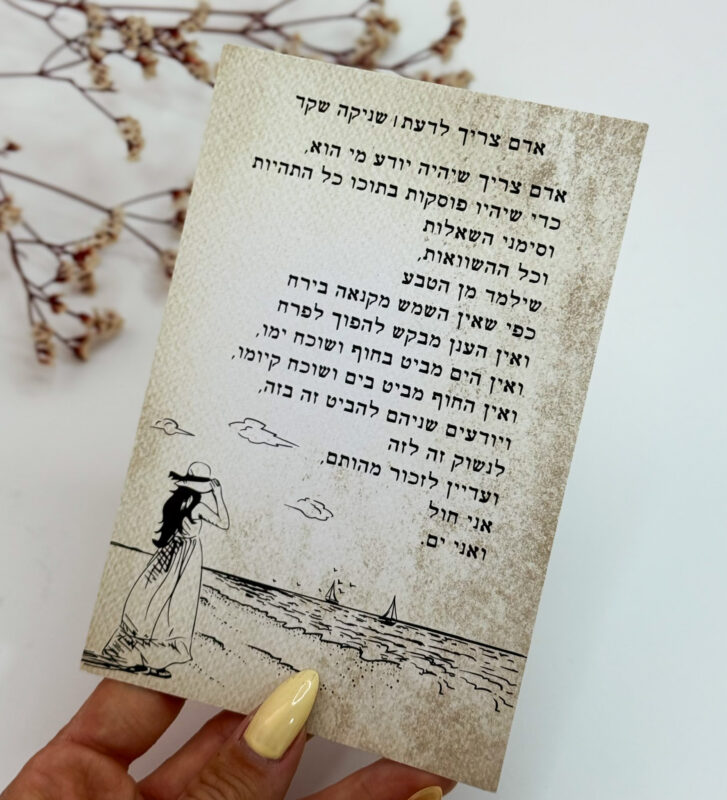 אדם צריך לדעת | שניקה שקד
אדם צריך שיהיה יודע מי הוא,
כדי שיהיו פוסקות בתוכו כל התהיות
וסימני השאלות
וכל ההשוואות,
שילמד מן הטבע
כפי שאין השמש מקנאה בירח
ואין הענן מבקש להפוך לפרח
ואין הים מביט בחוף ושוכח ימו,
ואין החוף מביט בים ושוכח קיומו,
ויודעים שניהם להביט זה בזה,
לנשוק זה לזה
ועדיין לזכור מהותם,
אני חול
ואני ים.